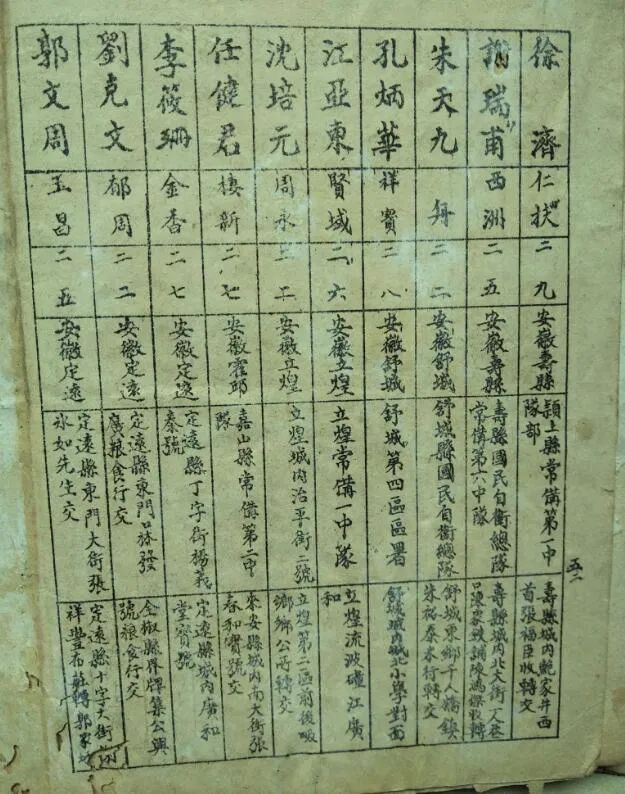 徐濟
仁扶
二九
安徽壽縣
潁上縣常備第一中隊部
壽縣城內鮑家井西首張福臣收轉交
謝瑞甫
西洲
二五
安徽壽縣
壽縣國民自衛總隊常備第六中隊
壽縣城內北大街
朱天九
舟
二二
安徽舒城
舒城縣國民自衛總隊
舒城東鄉千人橋鎮朱裕泰米行轉交
孔炳華
祥賓
二八
安徽舒城
舒城第四區區署
舒城城內城北小學對面
江亞東
賢城
二六
安徽立煌
立煌常備一中隊
立煌流波䃥江廣和
沈培元
周永
二二
安徽立煌
立煌城內治平街二號
立煌第二區前後畈鄉鄉公所轉交
任健君
棲新
二七
安徽霍邱
嘉山縣常備第二中隊
來安縣城內南大街張春和寶號交
李筱珊
金香
二七
安徽定遠
定遠縣丁字街楊義泰號
定遠縣城內廣和堂寶號
劉克文
郁周
二二
安徽定遠
定遠縣東門口林發廣粮食行交
全椒縣界牌集公興號粮食行交
郭文周
玉昌
二五
安徽定遠
定遠縣東門大街張冰如先生交
定遠縣十字大街祥豐布莊轉郭家
五二